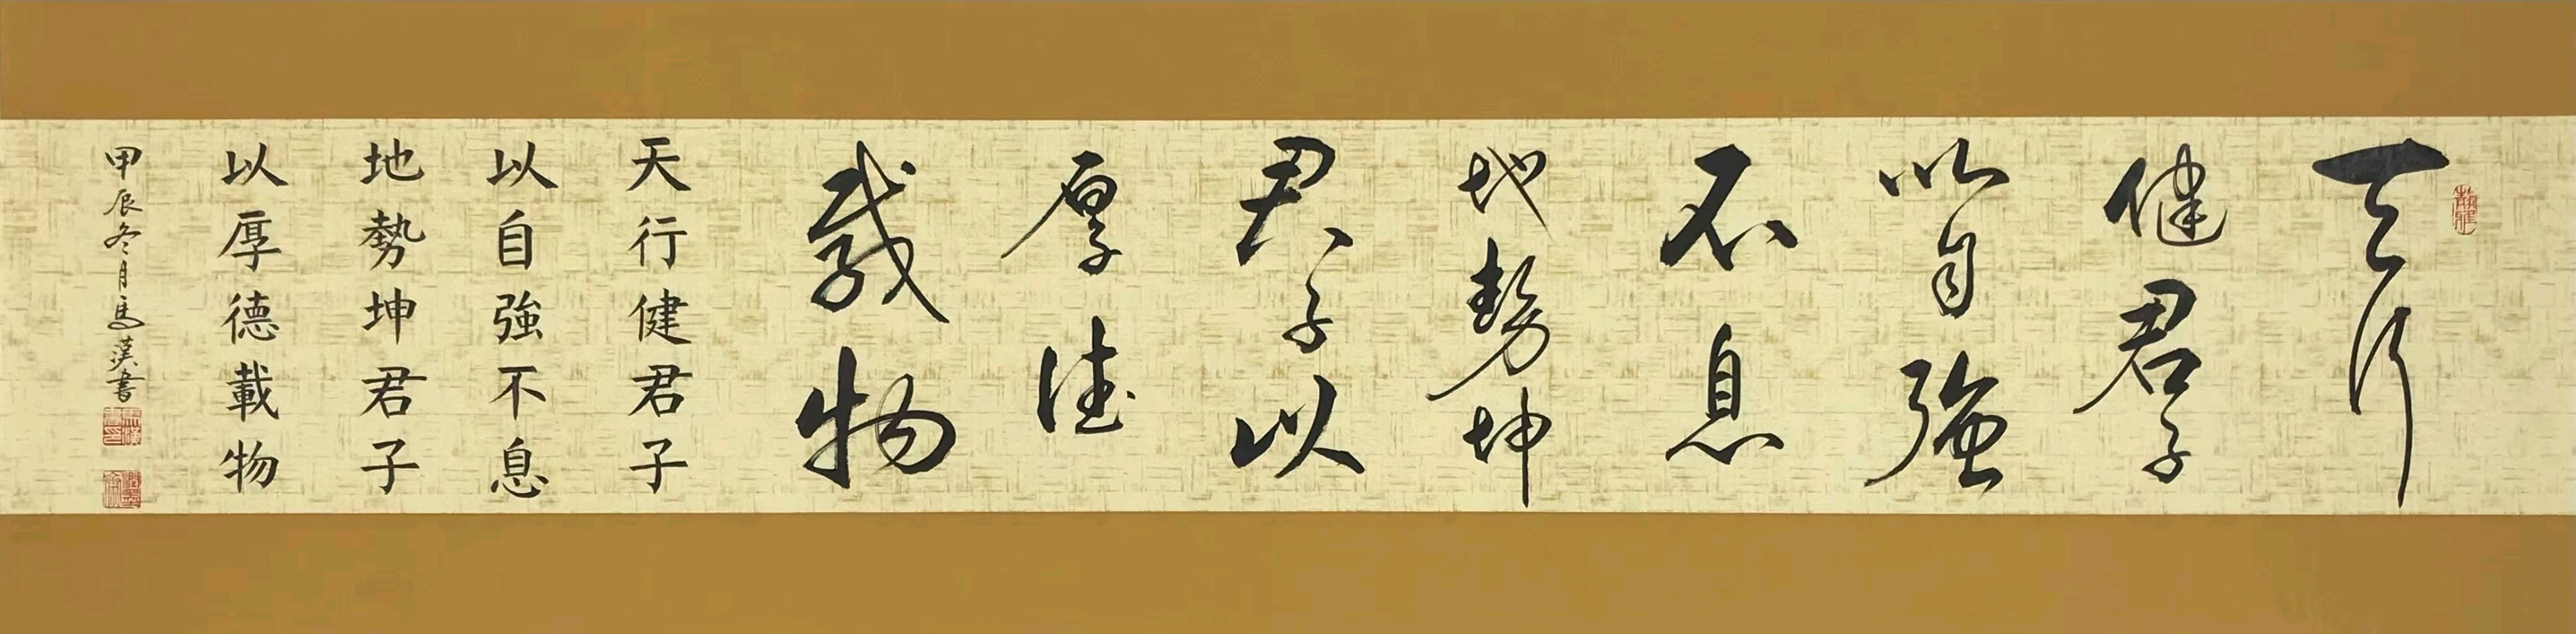 天行
健君子
以自強
不息
地勢坤
君子以
厚德
載物
天行健君子
以自強不息
地勢坤君子
以厚德載物
甲辰冬月馬漢書